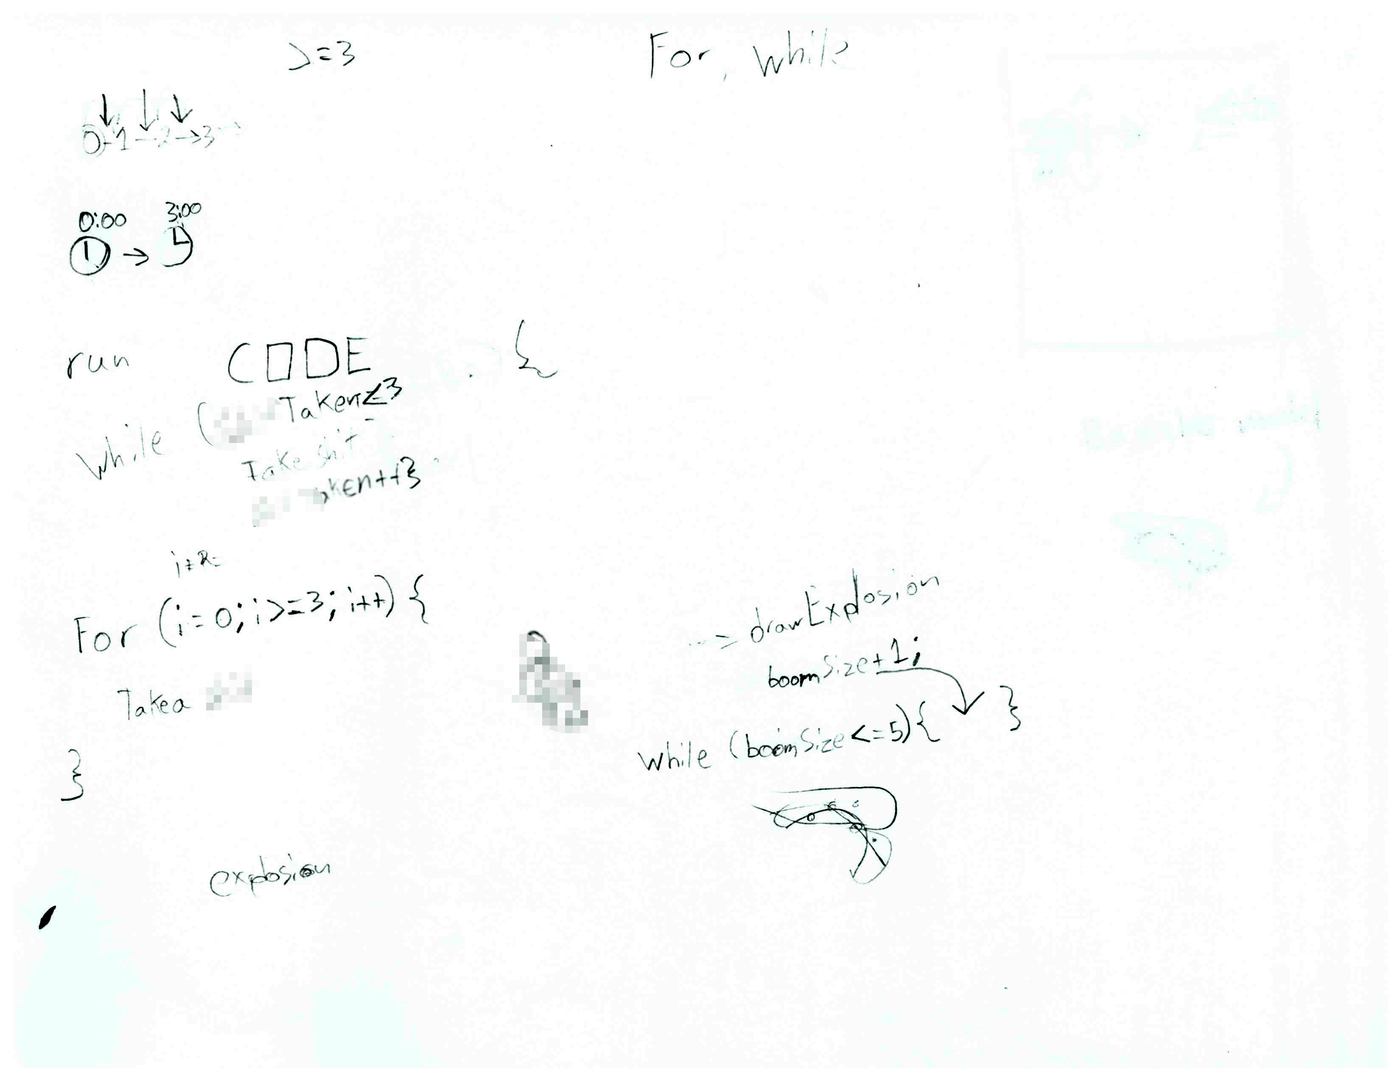 >=3
For, while
0-1→2→3
0:00 3:00
run CODE {
while ( Taken<3
Take shit
ken++}
For (i=0; i>=3; i++) {
Take a
}
explosion
drawExplosion
boomSize+1;
while (boomSize <=5){ }